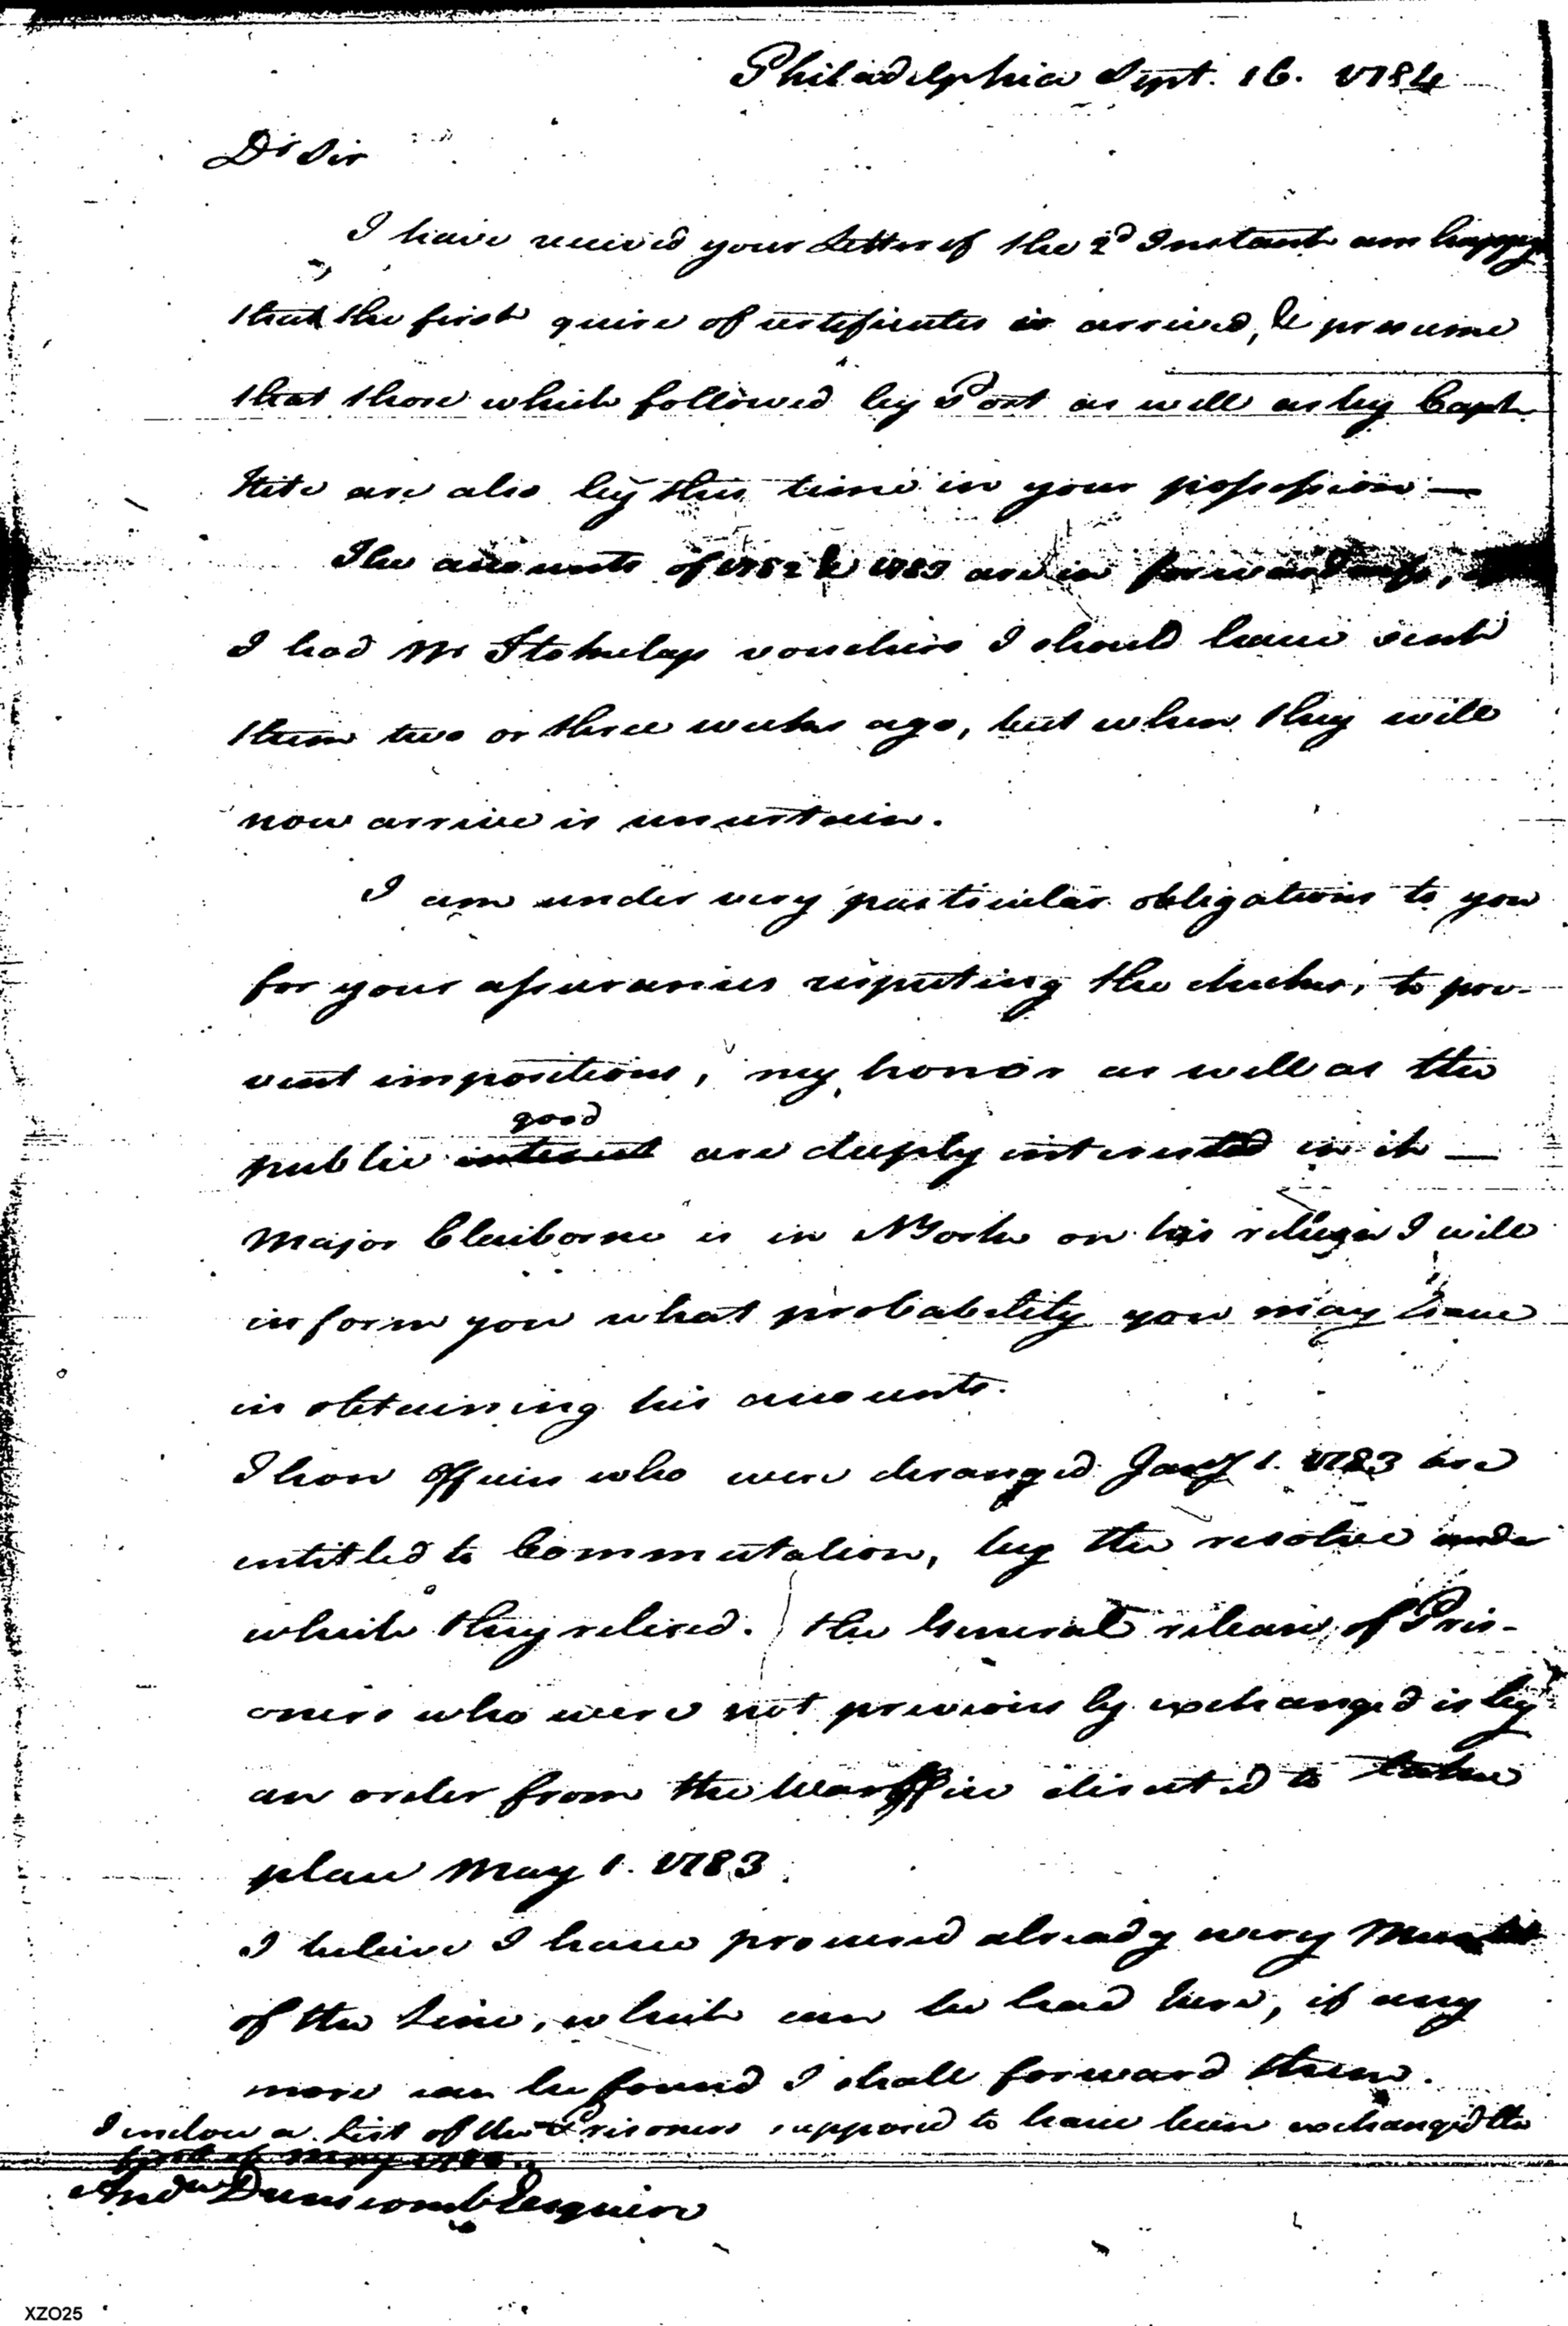 Philadelphia Sept. 16. 1784
Dr Sir
I have received your Letter of the 2d Instant am happy
that the first quire of certificates is arrived, & presume
that those which followed by Post as well as by Capt
are also by this time in your possession —
The accounts of 1782 & 1783 are in forwardness,
I had Mr vouchers I should have sent
them two or three weeks ago, but when they will
now arrive is uncertain.
I am under very particular obligations to you
for your assurances respecting the checks, to pre-
vent impositions, my honor as well as the
good
public interest are deeply interested in it —
Major Claiborne is in NYork on his return I will
inform you what probability you may have
in obtaining his accounts.
Those Officers who were deranged Jany 1. 1783 are
entitled to Commutation, by the resolve under
which they retired. the General release of Pris-
oners who were not previously exchanged is by
an order from the War Office directed to take
place May 1. 1783.
I believe I have procured already every
of the Line, which can be had here, if any
more can be found I shall forward them.
I enclose a List of the Prisoners supposed to have been exchanged the
first of May
Andw Dunscomb Esquire
XZO25